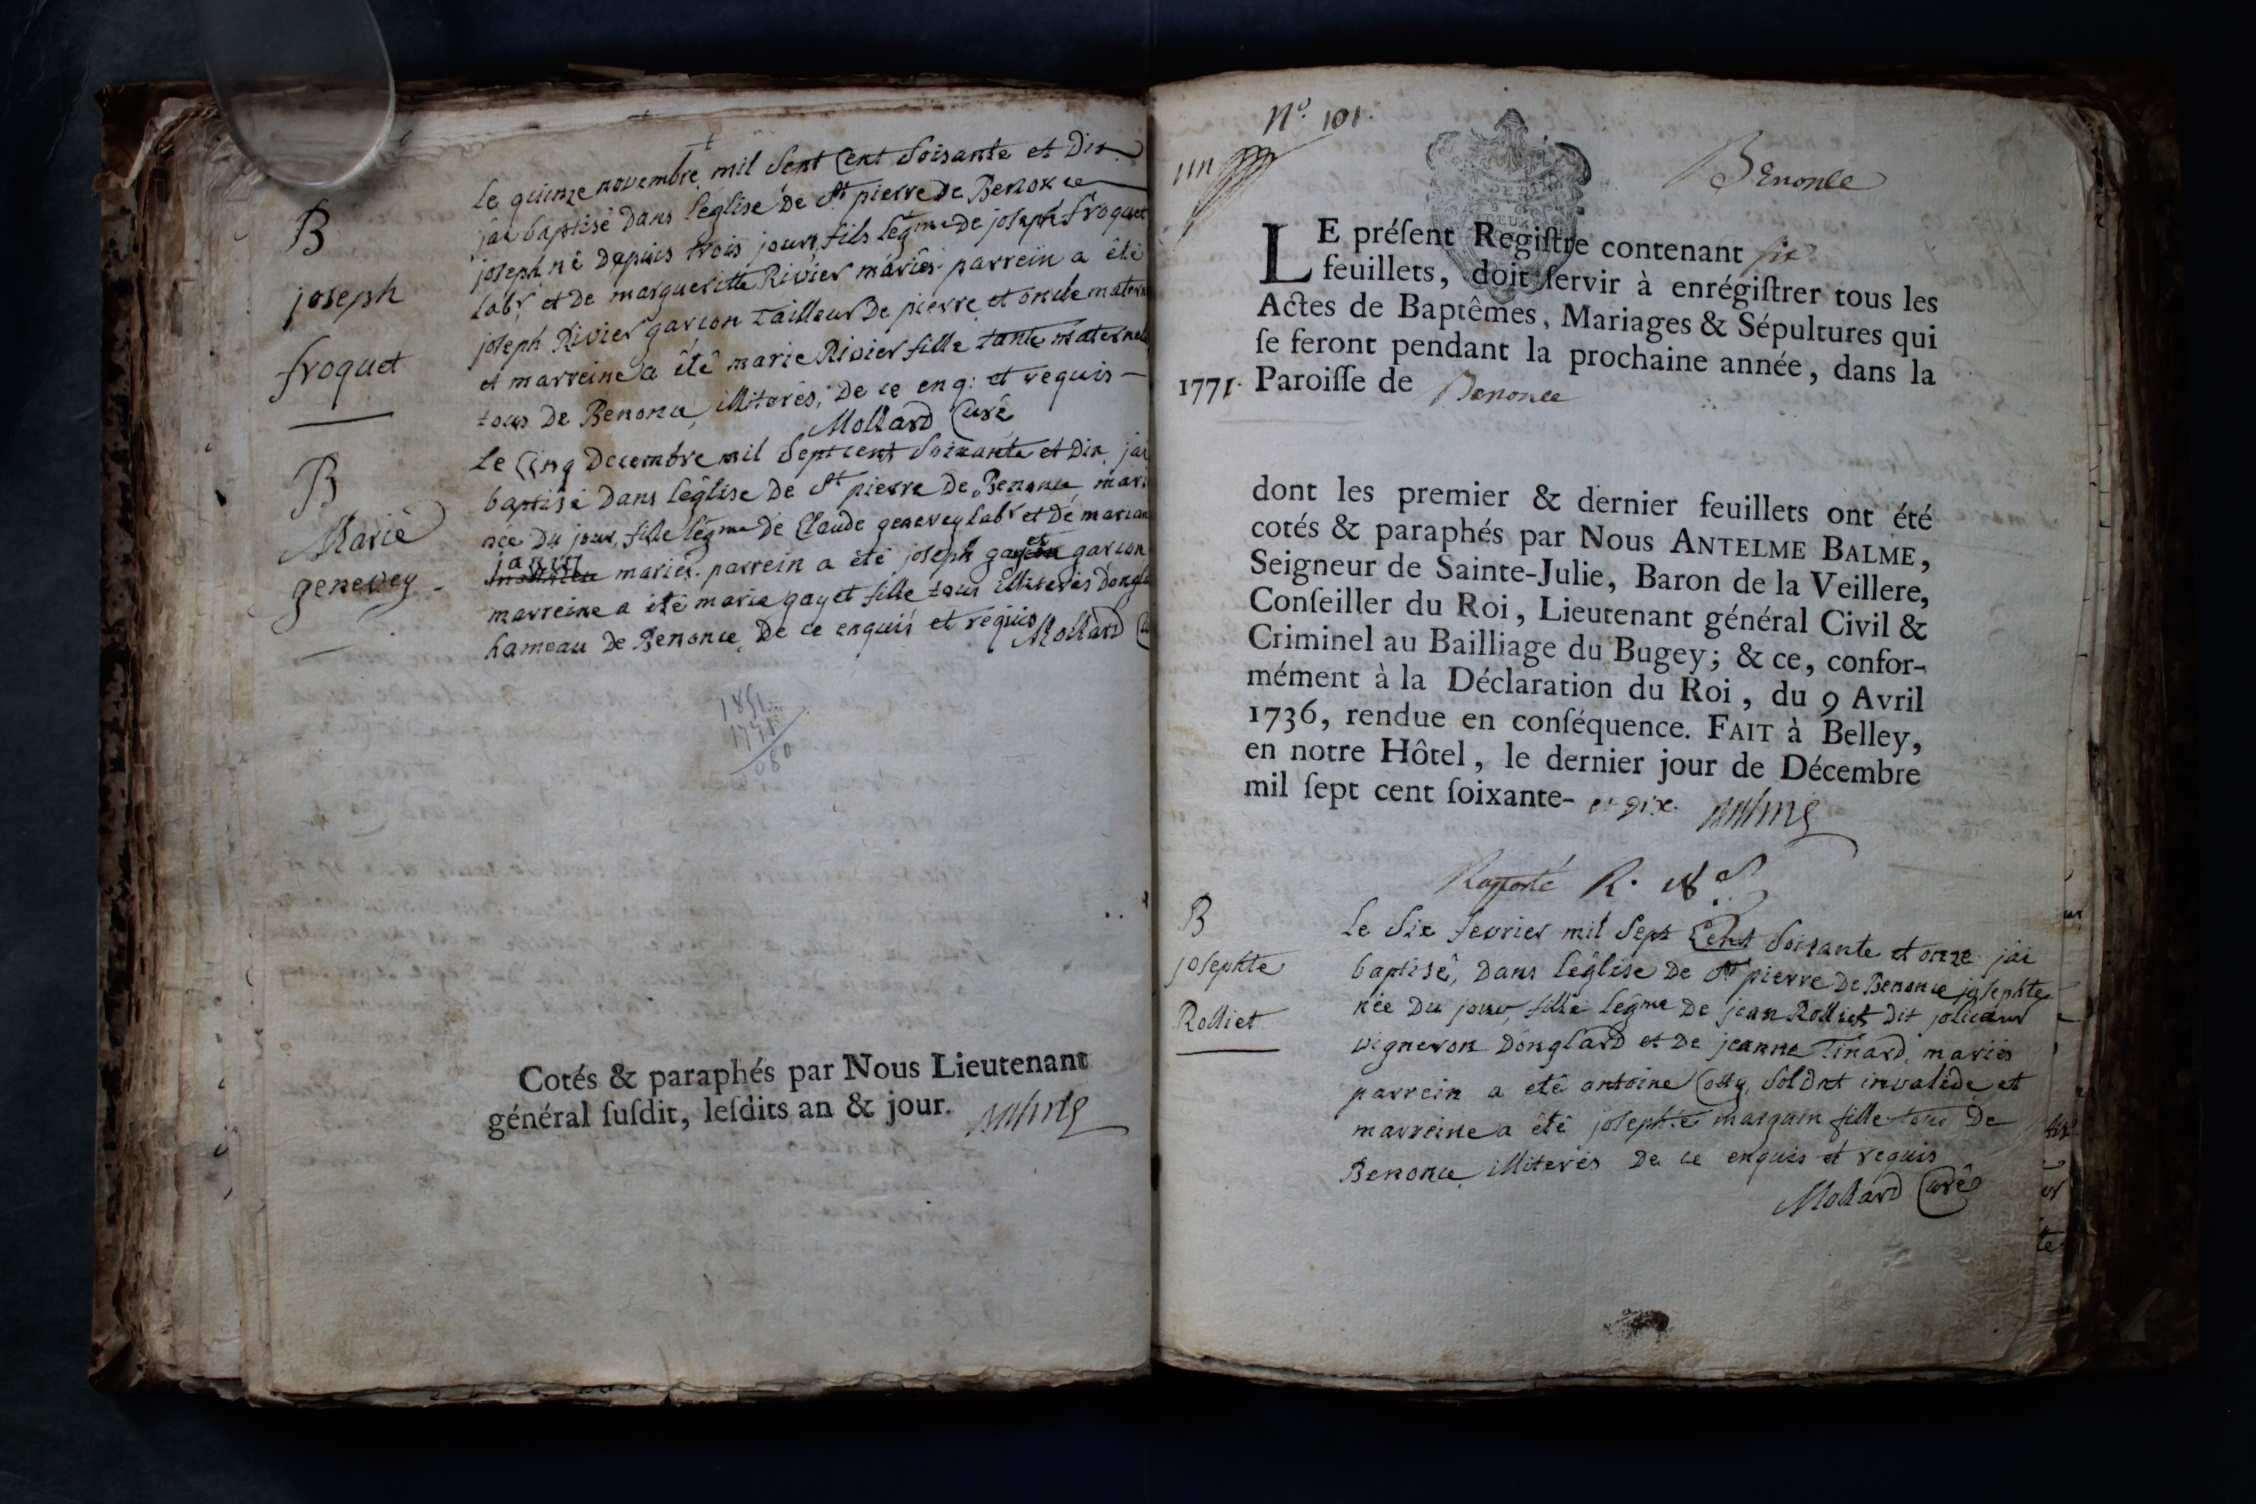 B
joseph
froquet
le quinze novembre mil Sent Cent Soisante et Dix
jai baptisé Dans l'eglise De St pierre De Benonce
joseph né Depuis trois jours, fils legme De joseph froquet
labr et De margueritte Rivier mariés parrein a êté
joseph Rivier garcon tailleur De pierre et oncle matern
et marreine a êtê marie Rivier fille tante maternel
tous De Benonce, illiterés, De ce enq: et requis
Mollard Curé
B
Marie
genevey
Le Cinq Decembre mil Septcent Soixante et Dix, jai
baptisé Dans l'église De St pierre De Benonce mari
née Du jour, fille legme De Claude genevey labr et De marian
mariés. parrein a êté joseph garcon
marreine a été marie gayet fille tous illiterés Dongla
hameau De Benonce, De ce enquis et requis
Mollard
1851
1771
080
Cotés & paraphés par Nous Lieutenant
général ſuſdit, leſdits an & jour.
No. 101.
un
Benonce
LE préſent Regiſtre contenant six
feuillets, doit ſervir à enrégiſtrer tous les
Actes de Baptêmes, Mariages & Sépultures qui
ſe feront pendant la prochaine année, dans la
1771. Paroiſſe de Benonce
dont les premier & dernier feuillets ont été
cotés & paraphés par Nous ANTELME BALME,
Seigneur de Sainte-Julie, Baron de la Veillere,
Conſeiller du Roi, Lieutenant général Civil &
Criminel au Bailliage du Bugey; & ce, confor-
mément à la Déclaration du Roi, du 9 Avril
1736, rendue en conſéquence. FAIT à Belley,
en notre Hôtel, le dernier jour de Décembre
mil ſept cent ſoixante- et dix.
Rapporté R.
B
josephte
Rolliet
le Six fevrier mil Sept Cent Soixante et onze jai
baptisé, Dans l'église De St pierre De Benonce josephte
née Du jour, fille legme De jean Rolliet Dit jolicœur
vigneron Donglard et De jeanne Tinard, mariés
parrein a eté antoine Cotty, Soldat invalide et
marreine a êté josephte marquin fille tous De
Benonce illiterés De ce enquis et requis
Mollard Curé